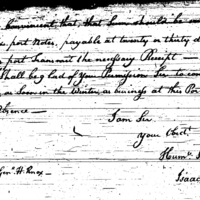 Convenient that, that Sum should be
port Notes, payable at twenty or thirty d
post Transmit the necessary Receipt —
Shall be glad of Your Permission Sir to co
as Soon in the Winter as business at this Por
bsence —
I am Sir
your Obed.
Hum.
Gen. H. Knox
Isaac